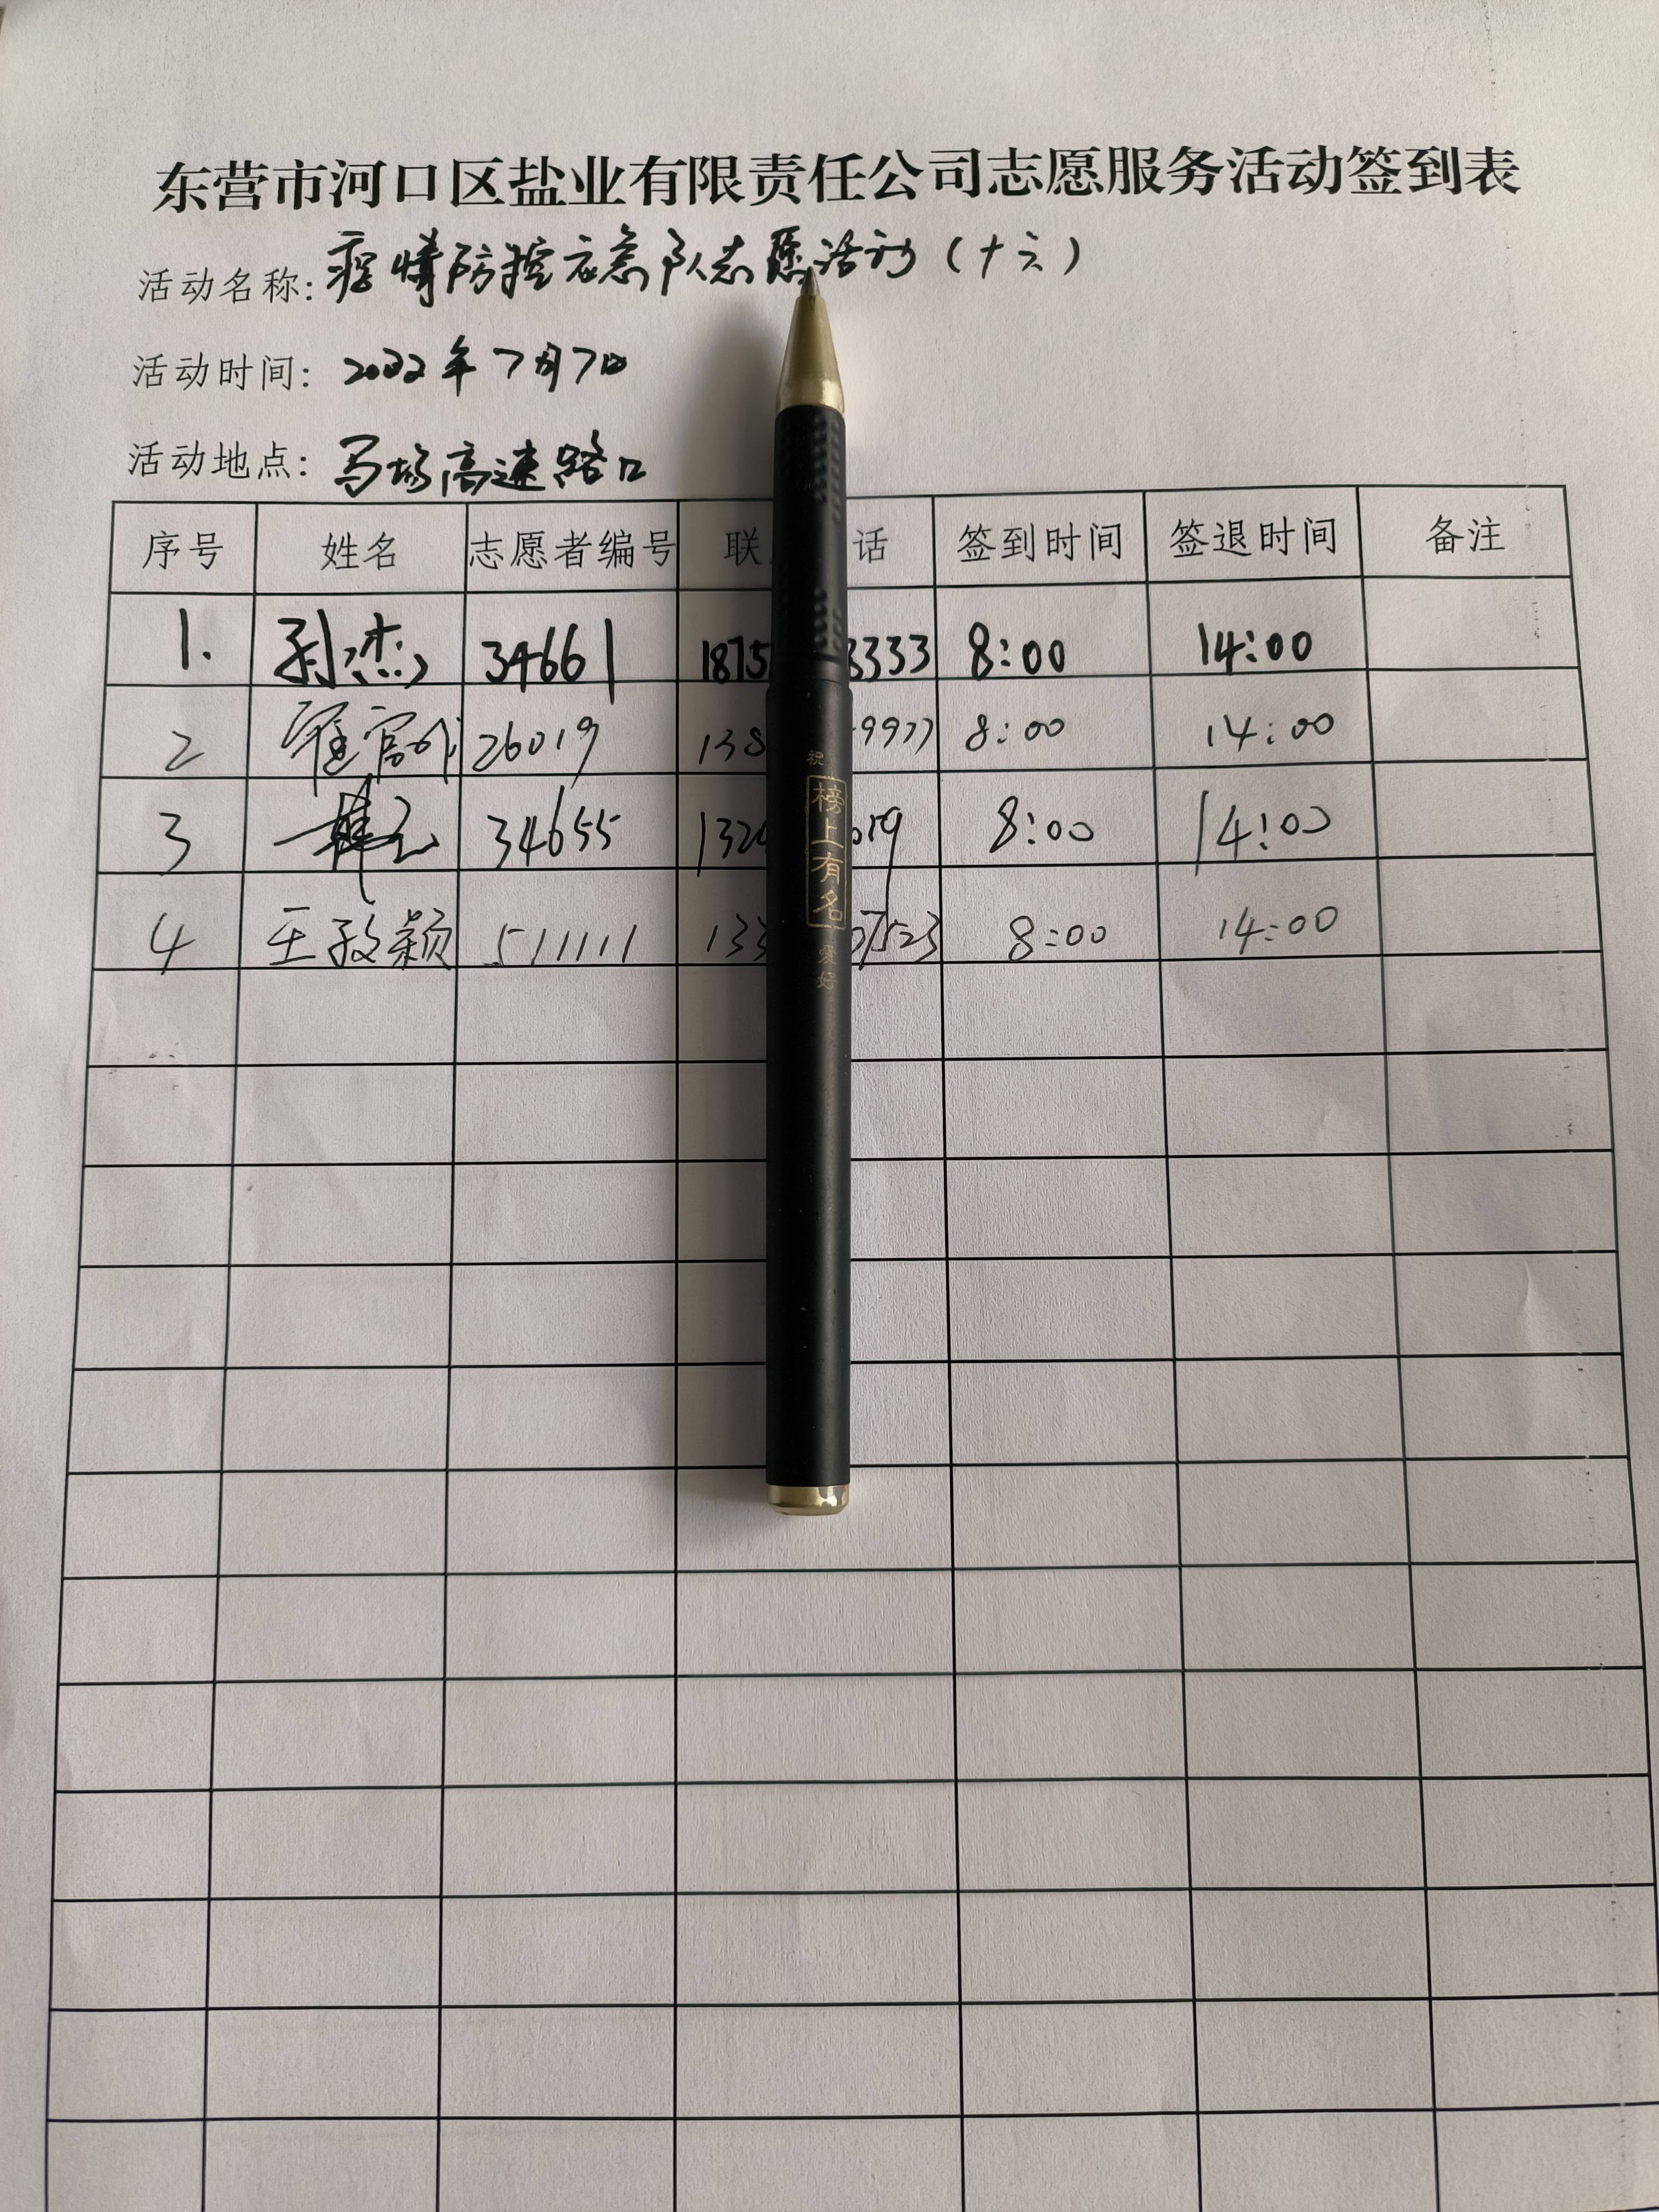 东营市河口区盐业有限责任公司志愿服务活动签到表
活动名称: 疫情防控应急队志愿活动（十六）
活动时间: 2022年7月7日
活动地点: 马场高速路口
序号 姓名 志愿者编号 联 话 签到时间 签退时间 备注
1. 孙杰 34661 1875 3333 8:00 14:00
2 26019 138 9977 8:00 14:00
3 34655 132 019 8:00 14:00
4 王孜颖 511111 133 07523 8:00 14:00
祝
榜上有名
爱好